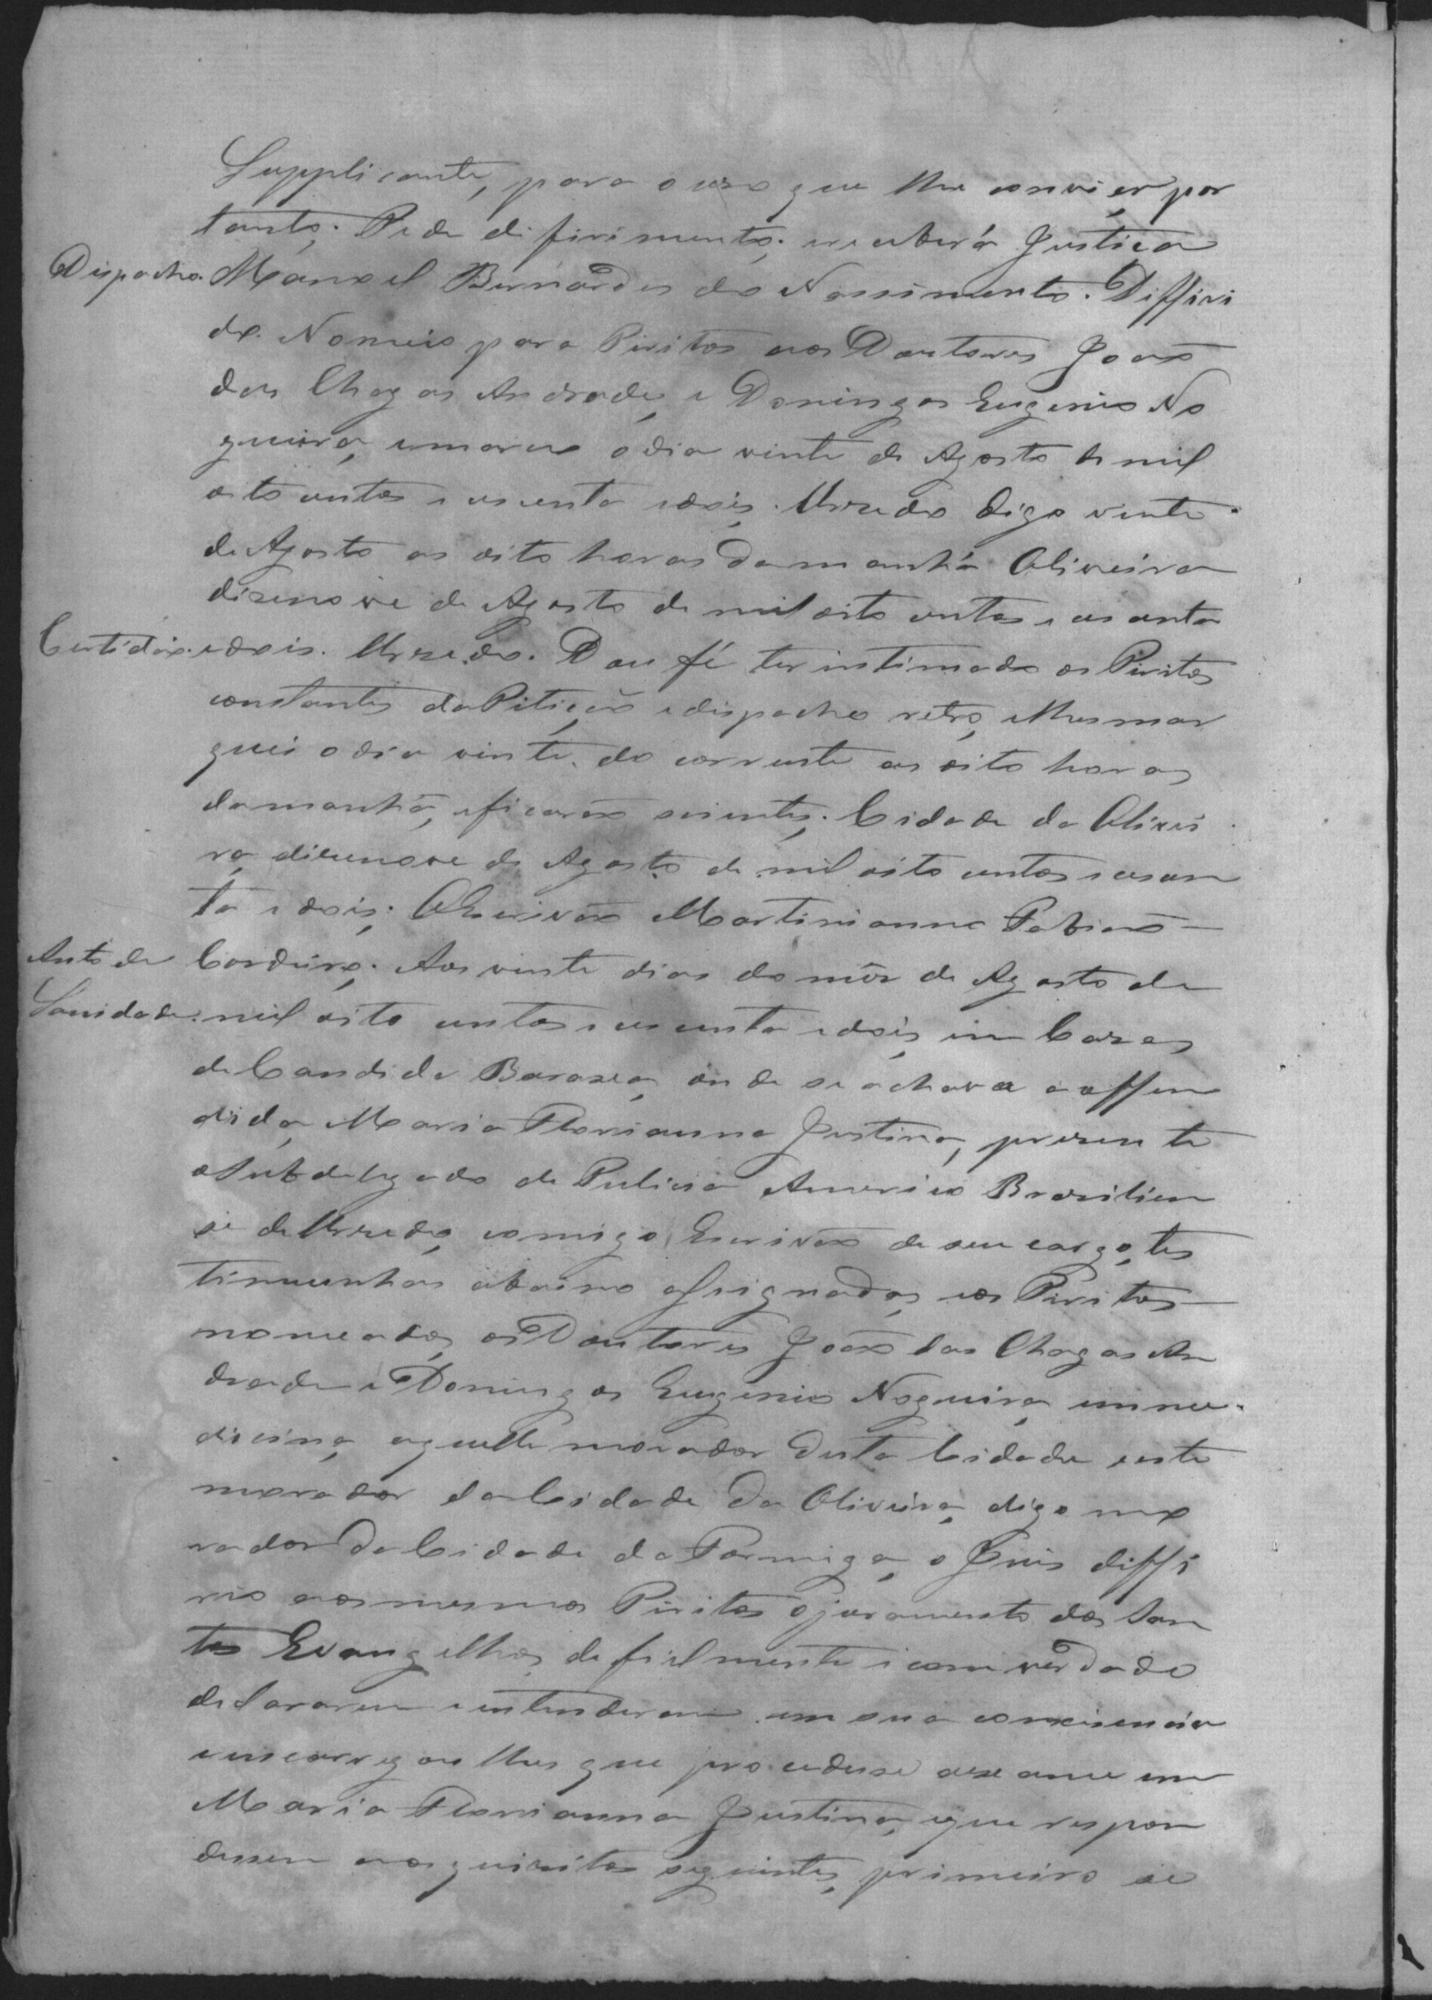 Supplicante, para o uso que lhe convier por
tanto; Pede difirimento; e receberá Justica
Dispacho. Manoel Bernardes do Nassimento. Diffiri
do. Nomeio para Piritos aos Doutores Joaõ
das Chagas Andrade, e Domingos Eugenio No
gueira, e marco o dia vinte de Agosto de mil
oito centos e secenta e dois. Urzedo digo vinte
de Agosto as oito horas da manhã Oliveira
dizenove de Agosto de mil oito centos e cesenta
Certidaõ. e dois. Urzedo. Dou fé ter intimado os Piritos
constantes da Pitiçaõ e dispacho retro, e lhes mar
quei o dia vinte do corrente as oito horas
da manhã, e ficaraõ scientes. Cidade da Olivei
ra dizenove de Agosto de mil oito centos e cesen
ta e dois; O Escrivaõ Martinianno Fabiano
Auto de Cordeiro. Aos vinte dias do mês de Agosto de
Sanidade. mil oito centos e secenta e dois, em Cazas
de Candida Baroza, onde se achava a offen
dida, Maria Florianna Justina, presente
o Subdelegado de Pulicia Americo Braziliense
se de Urzedo, comigo Escrivaõ de seu cargo, tes
timunhas abaixo assignadas, e os Piritos
nomeados, os Doutores Joaõ das Chagas An
drade e Domingos Eugenio Nogueira, em me
dicina, aquelle morador desta Cidade e este
morador da Cidade da Oliveira, digo mo
rador da Cidade da Formiga, o Juis diffi
rio aos mesmos Piritos o juramento dos San
tos Evangelhos, de fielmente e com verdade
declararem e entenderem em sua consciencia
e encarregou lhes que procedese a exame em
Maria Florianna Justina, e que respon
dessem aos quizitos seguintes, primeiro se